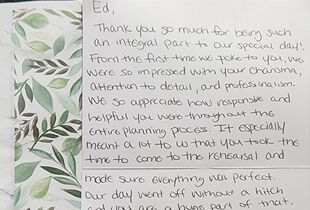 Ed,
Thank you so much for being such
an integral part to our special day!
From the first time we spoke to you, we
were so impressed with your charisma,
attention to detail, and professionalism.
We so appreciate how responsive and
helpful you were throughout the
entire planning process. It especially
meant a lot to us that you took the
time to come to the rehearsal and
made sure everything was perfect.
Our day went off without a hitch
and you are a huge part of that.